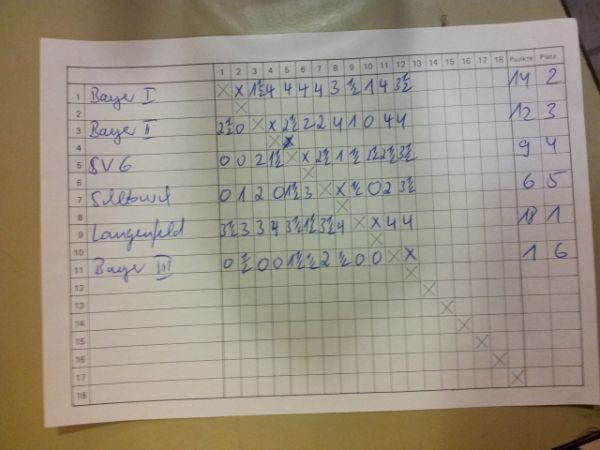 1 2 3 4 5 6 7 8 9 10 11 12 13 14 15 16 17 18 Punkte Platz
1 Bayer I x x 1½ 4 4 4 4 3 ½ 1 4 3½ 14 2
2
3 Bayer II 2½ 0 x x 2½ 2 2 4 1 0 4 4 12 3
4
5 SV6 0 0 2 1½ x x 2½ 1 ½ 1½ 2½ 3½ 9 4
6
7 0 1 2 0 1½ 3 x x ½ 0 2 3½ 6 5
8
9 Langenfeld 3½ 3 3 4 3½ 1½ 3½ 4 x x 4 4 18 1
10
11 Bayer III 0 ½ 0 0 1½ ½ 2 ½ 0 0 x x 1 6
12
13
14
15
16
17
18